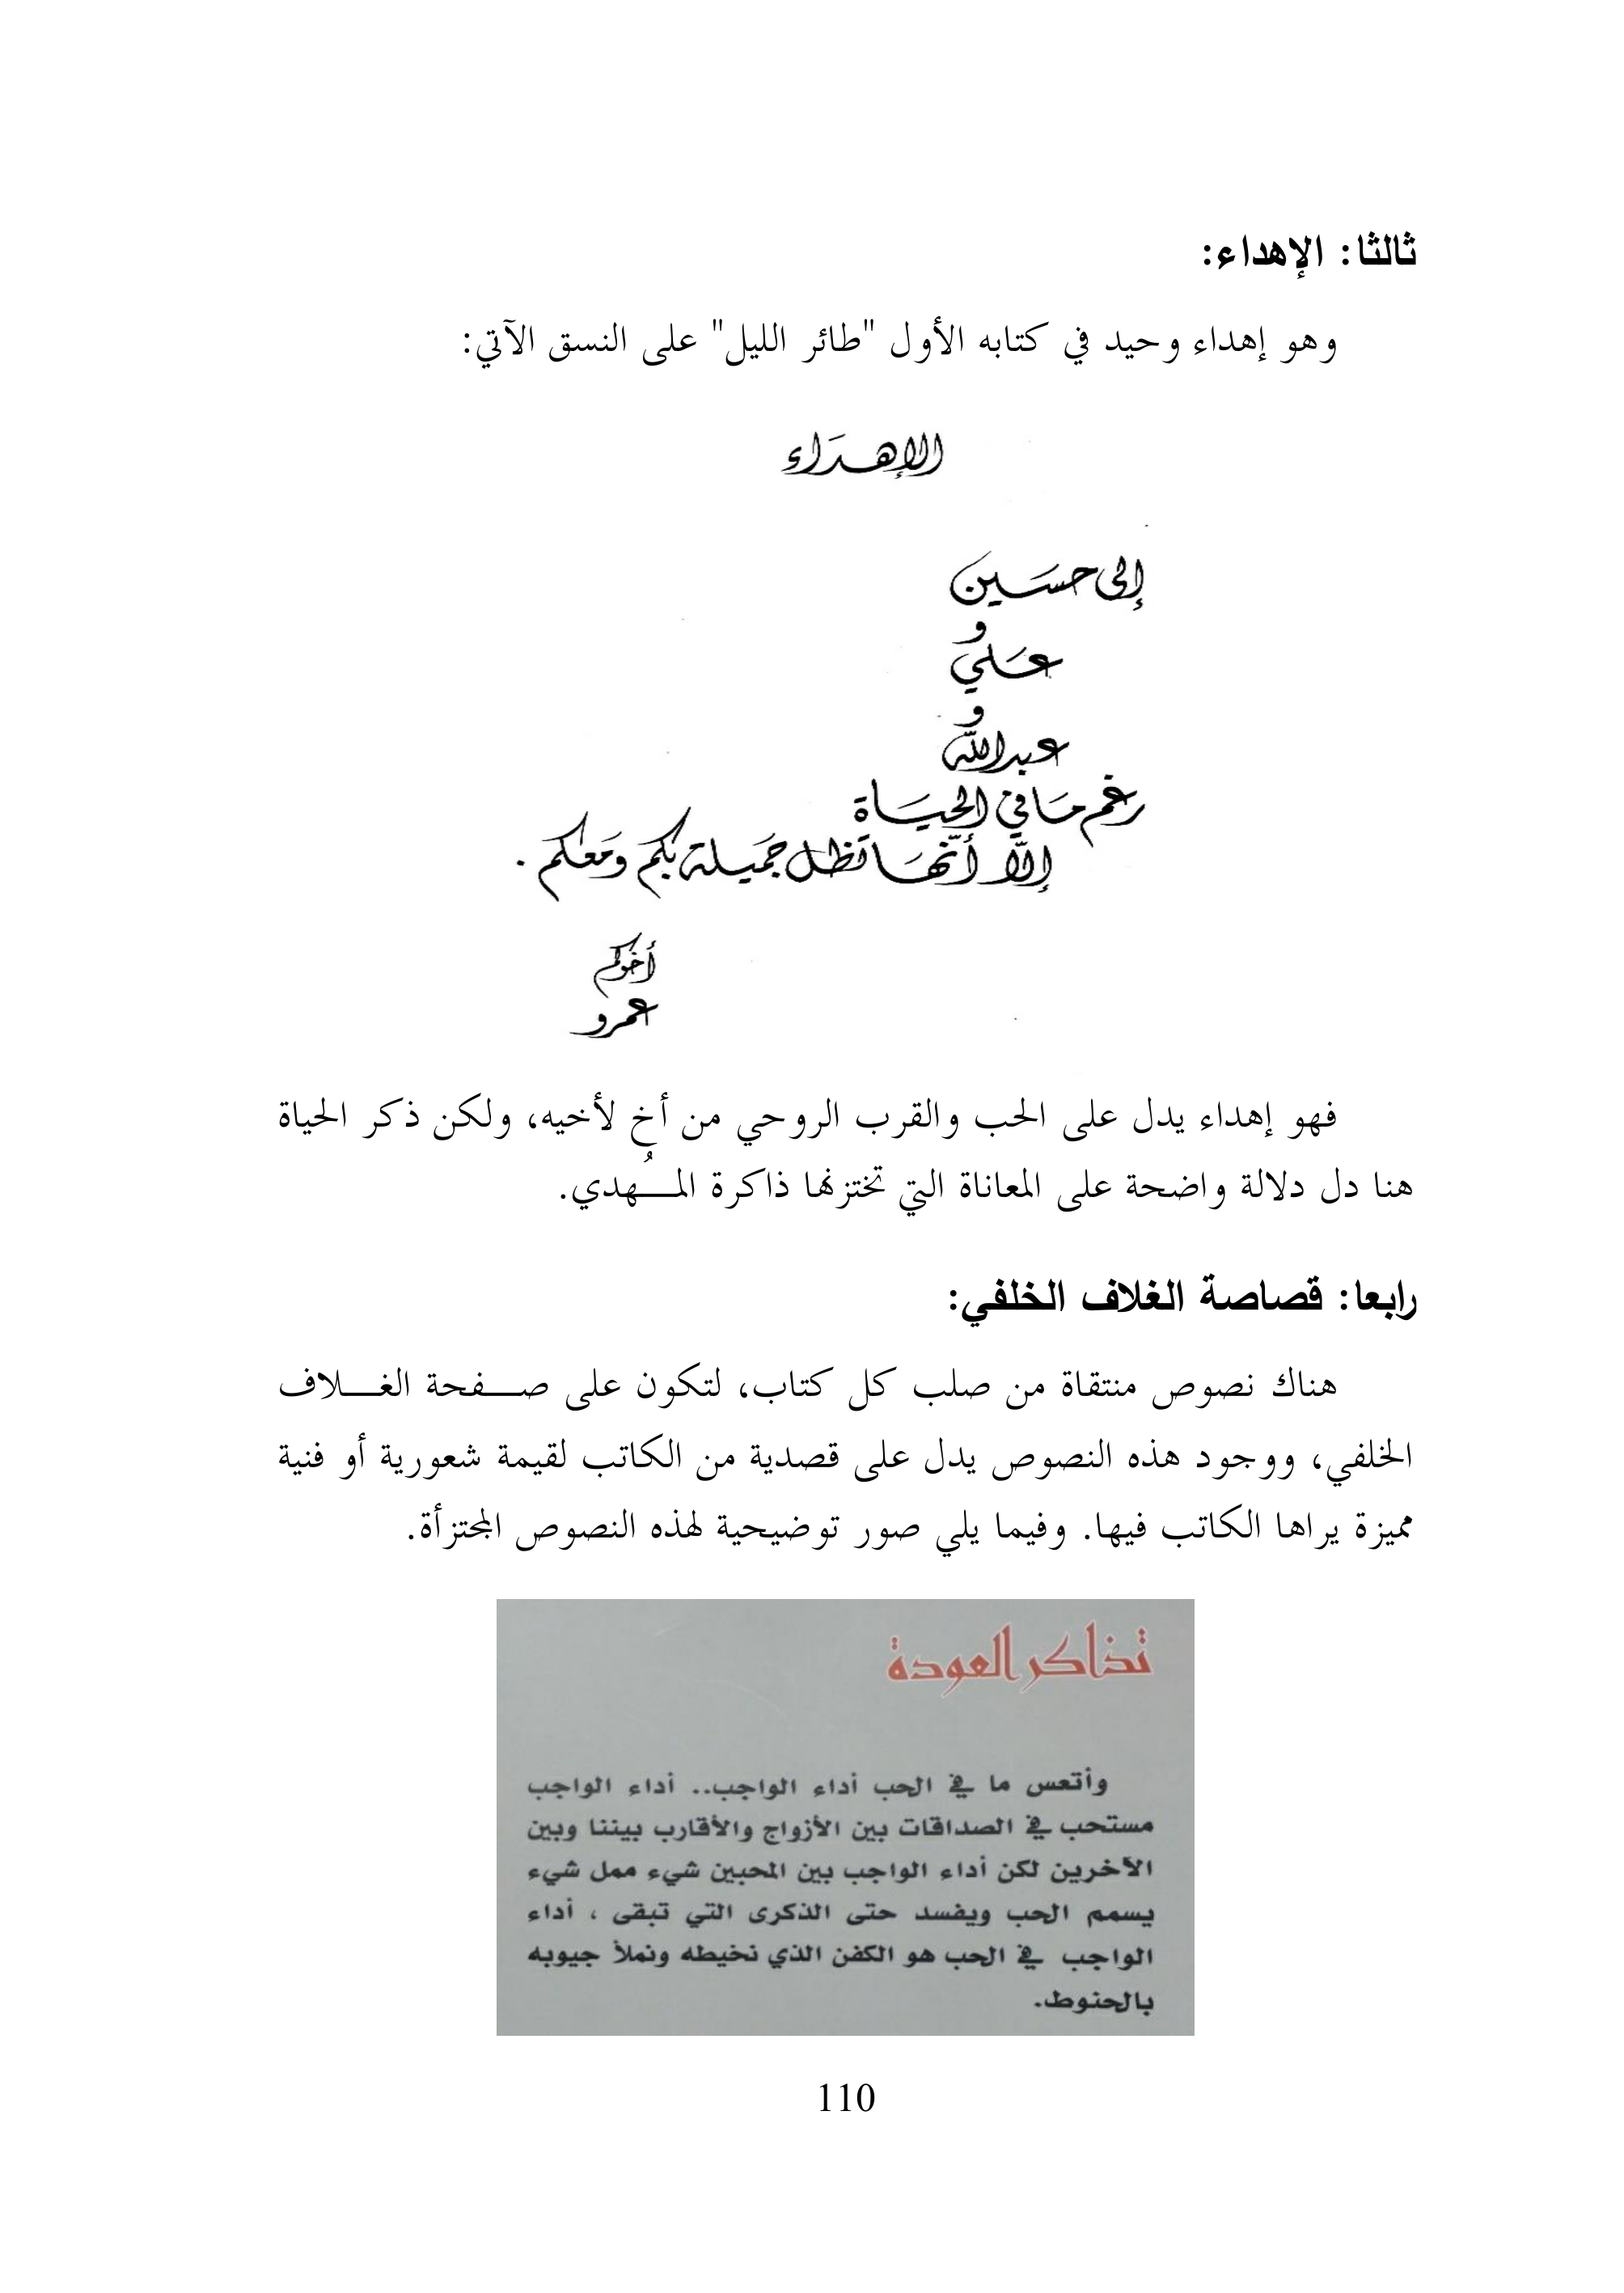 ثالثا: الإهداء:
وهو إهداء وحيد في كتابه الأول "طائر الليل" على النسق الآتي:
الإهداء
إلى حسين
و
علي
و
عبدالله
رغم ما في الحياة
إلا أنها تظل جميلة بكم ومعكم .
أخوكم
عمرو
فهو إهداء يدل على الحب والقرب الروحي من أخٍ لأخيه، ولكن ذكر الحياة
هنا دل دلالة واضحة على المعاناة التي تختزنها ذاكرة المـــُهدي.
رابعا: قصاصة الغلاف الخلفي:
هناك نصوص منتقاة من صلب كل كتاب، لتكون على صـــفحة الغـــلاف
الخلفي، ووجود هذه النصوص يدل على قصدية من الكاتب لقيمة شعورية أو فنية
مميزة يراها الكاتب فيها. وفيما يلي صور توضيحية لهذه النصوص المجتزأة.
تذاكر العودة
وأتعس ما في الحب أداء الواجب.. أداء الواجب
مستحب في الصداقات بين الأزواج والأقارب بيننا وبين
الآخرين لكن أداء الواجب بين المحبين شيء ممل شيء
يسمم الحب ويفسد حتى الذكرى التي تبقى ، أداء
الواجب في الحب هو الكفن الذي نخيطه ونملأ جيوبه
بالحنوط.
110